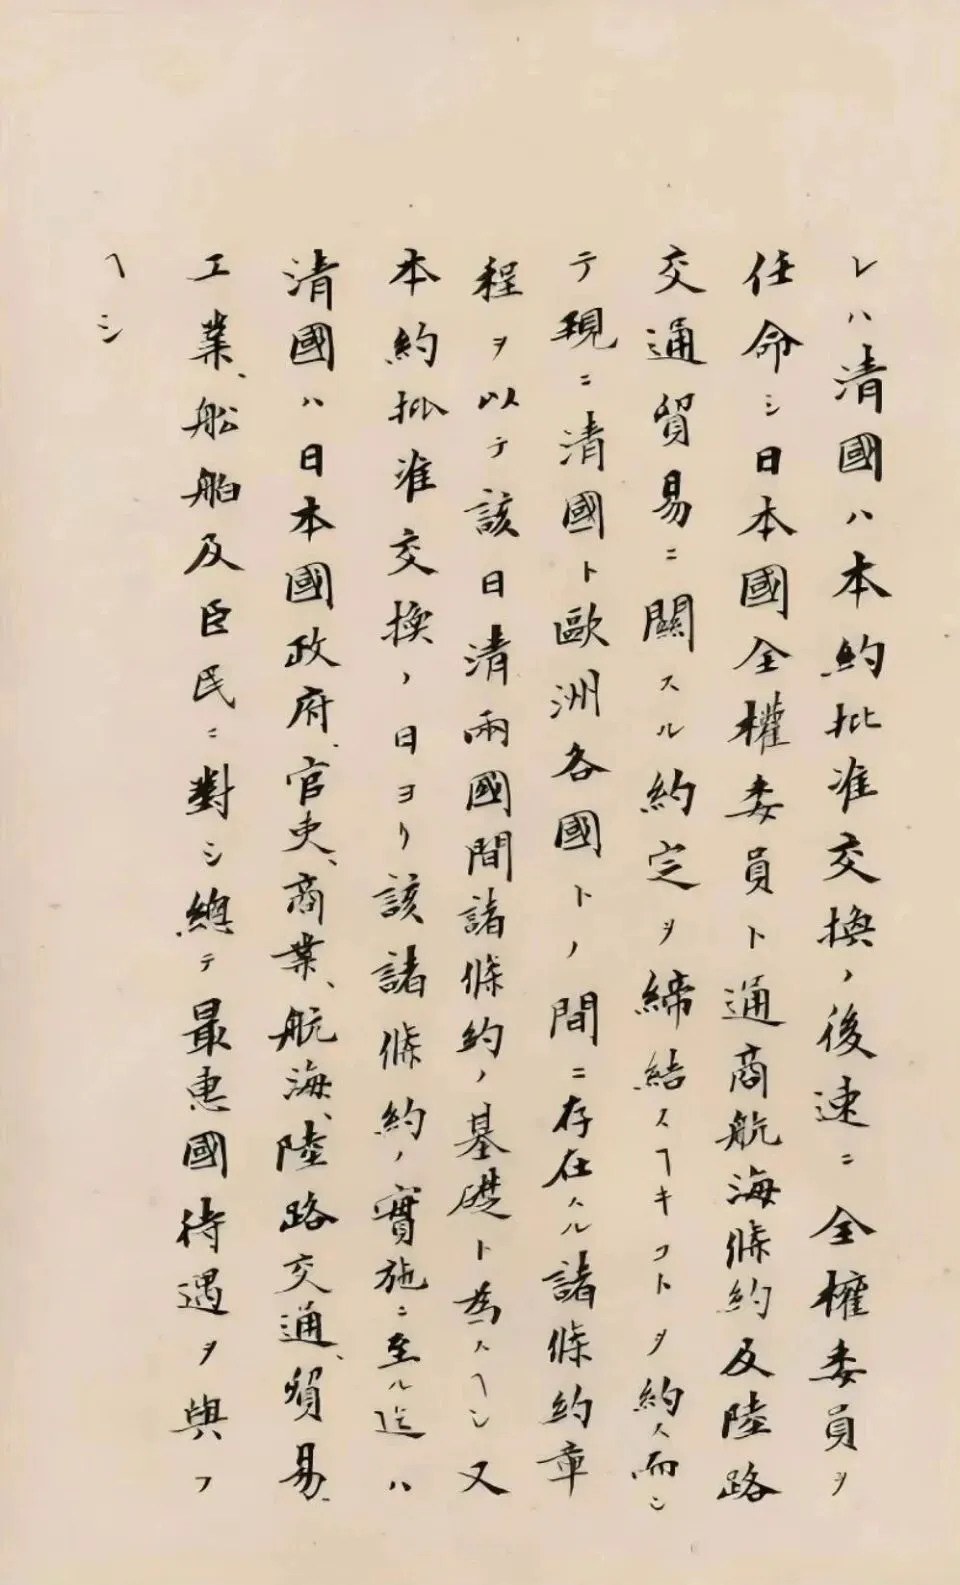 レハ清國ハ本約批准交換ノ後速ニ全權委員ヲ
任命シ日本國全權委員ト通商航海條約及陸路
交通貿易ニ關スル約定ヲ締結スヘキコトヲ約ス而シ
テ現ニ清國ト歐洲各國トノ間ニ存在スル諸條約章
程ヲ以テ該日清兩國間諸條約ノ基礎ト為スヘシ又
本約批准交換ノ日ヨリ該諸條約ノ實施ニ至ル迄ハ
清國ハ日本國政府、官吏、商業、航海、陸路交通、貿易、
工業、船舶及臣民ニ對シ總テ最惠國待遇ヲ與フ
ヘシ